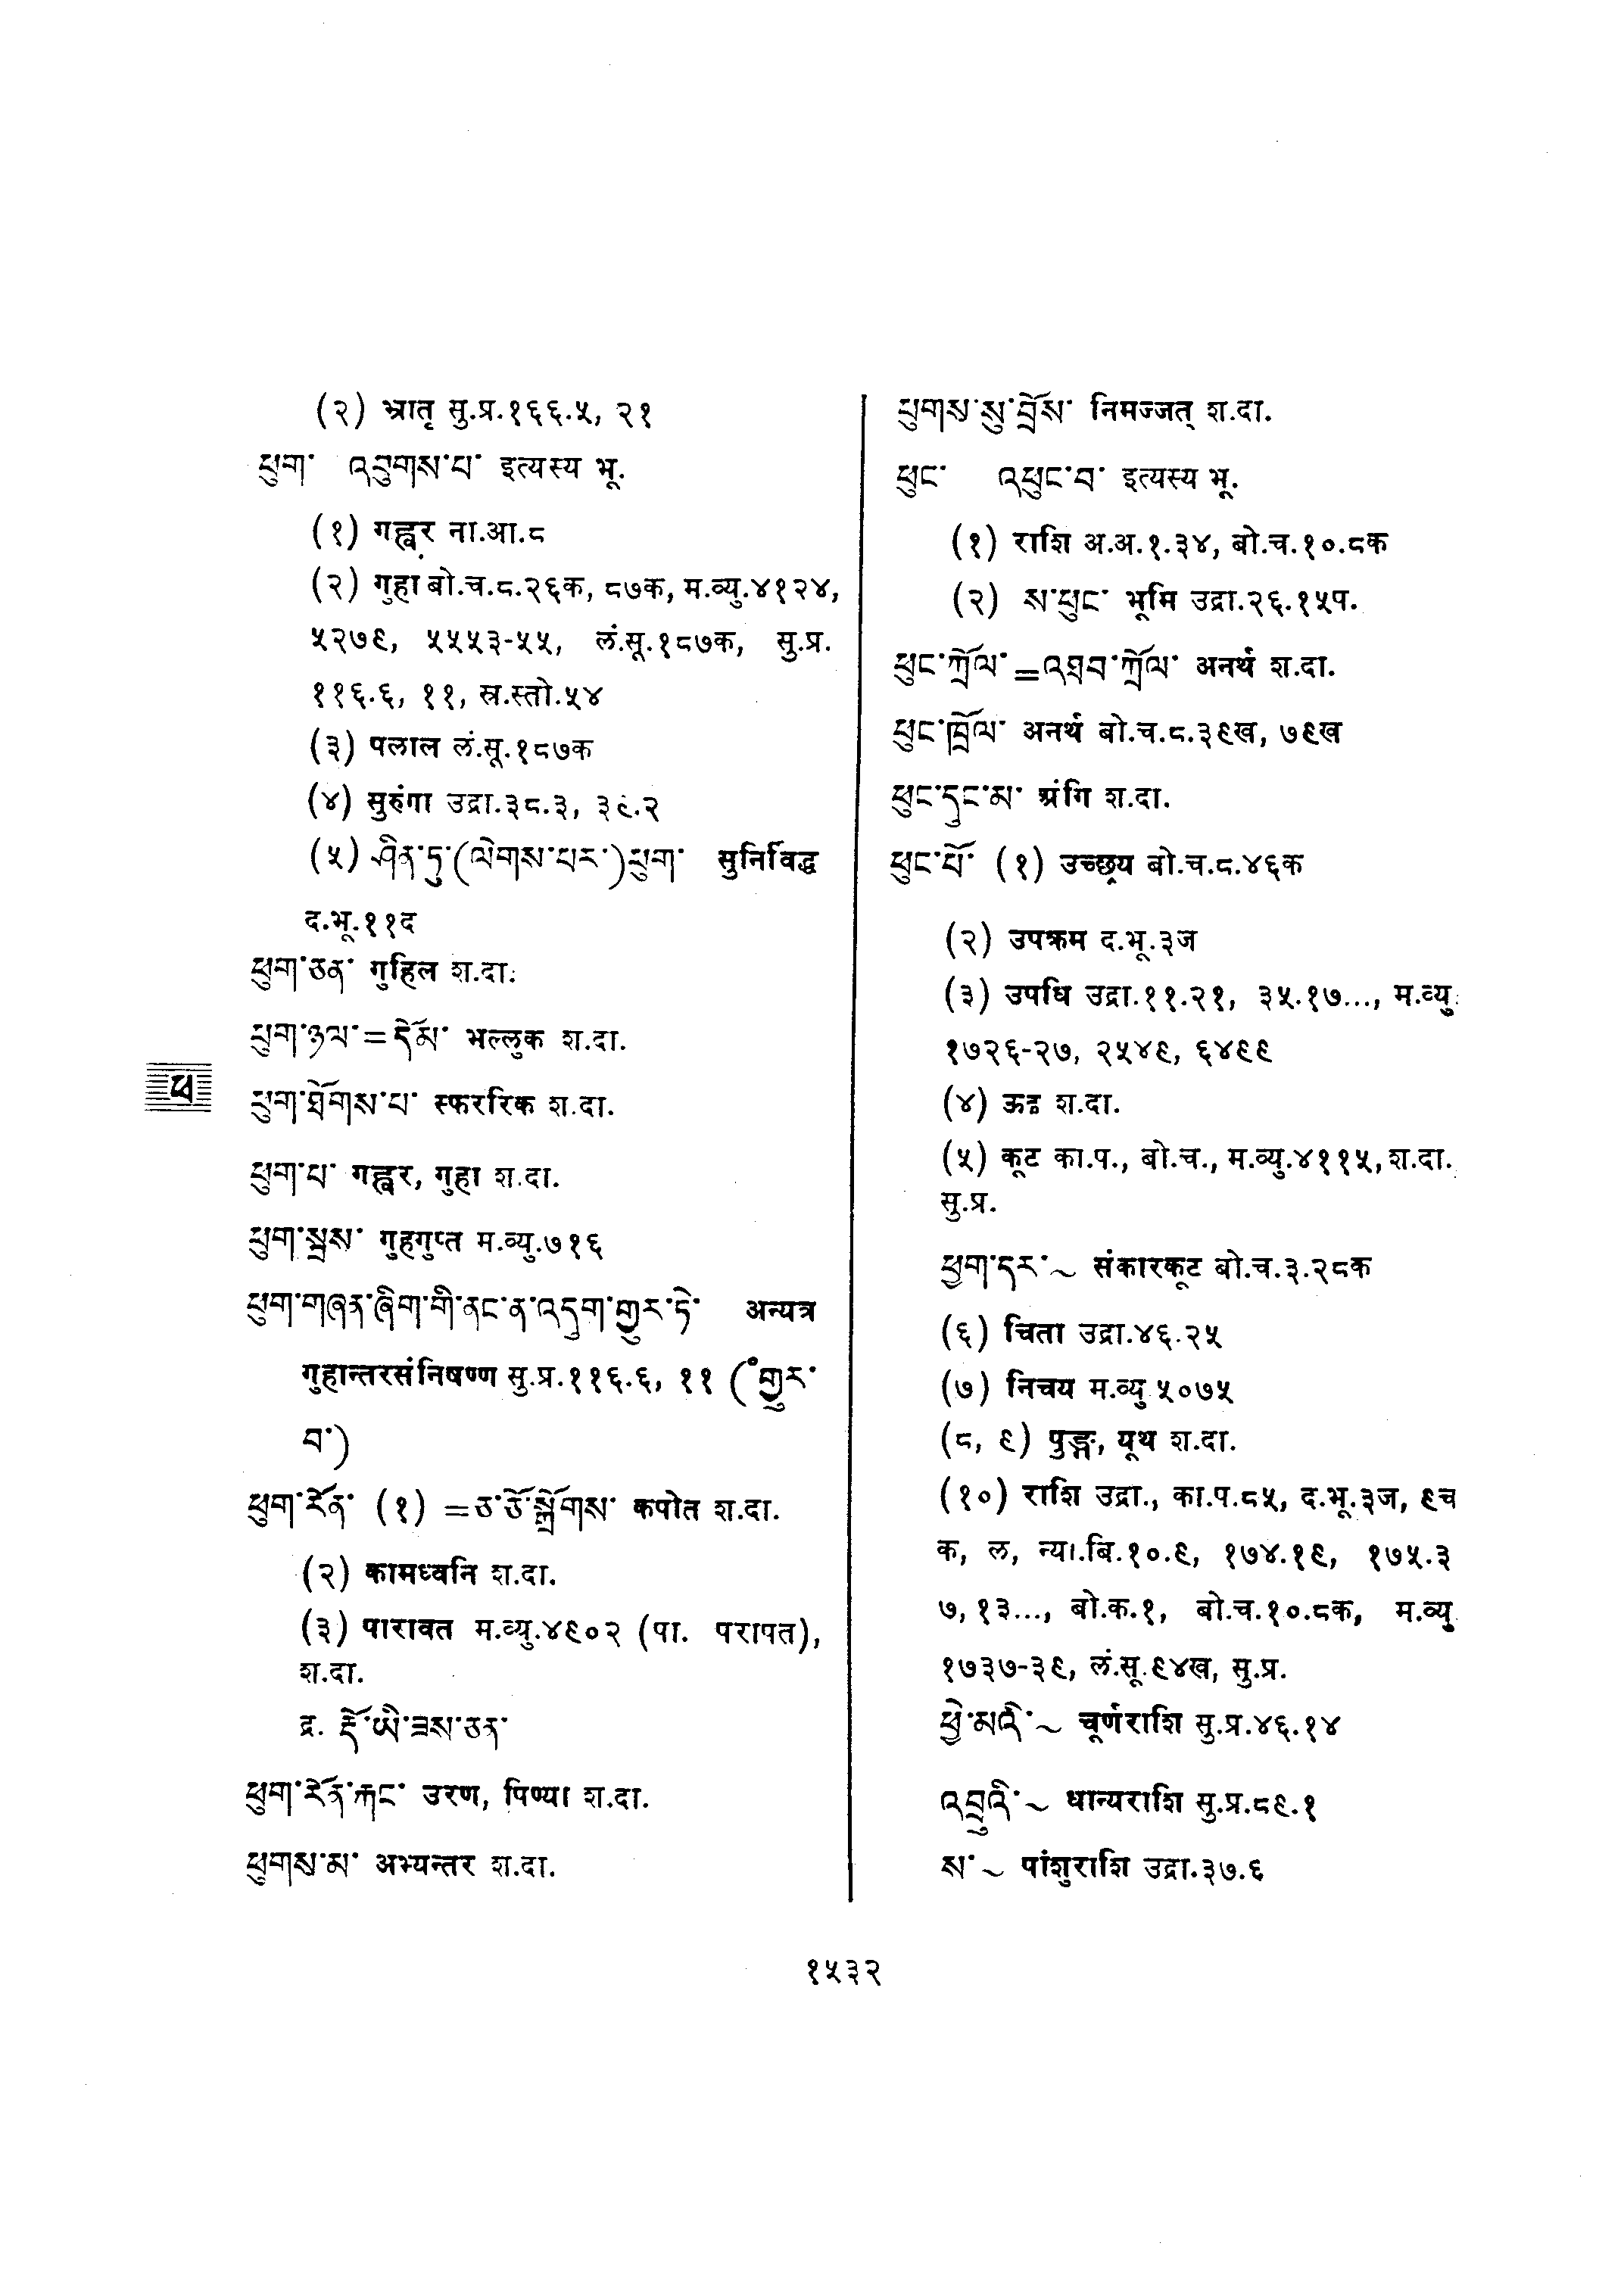 (२) भ्रातृ सु.प्र.१६६.५, २१
ཕུག་ འབུགས་པ་ इत्यस्य भू.
(१) गह्वर ना.आ.८
(२) गुहा बो.च.८.२६क, ८७क, म.व्यु.४१२४,
५२७९, ५५५३-५५, लं.सू.१८७क, सु.प्र.
११६.६, ११, स्र.स्तो.५४
(३) पलाल लं.सू.१८७क
(४) सुरुंगा उद्रा.३८.३, ३९.२
(५) ཤིན་ཏུ་(ལེགས་པར་)ཕུག་ सुनिर्विद्ध
द.भू.११द
ཕུག་ཅན་ गुहिल श.दा.
ཕུག་ཉལ་=དེམོ་ भल्लुक श.दा.
ཕུག་ཐོགས་པ་ स्फररिक श.दा.
ཕུག་པ་ गह्वर, गुहा श.दा.
ཕུག་སྦས་ गुहगुप्त म.व्यु.७१६
ཕུག་གཞན་ཞིག་གི་ནང་ན་འདུག་གྱུར་ཏེ་ अन्यत्र
गुहान्तरसंनिषण्ण सु.प्र.११६.६, ११ (°གྱུར་
བ་)
ཕུག་རོན་ (१) =ཅ་ཅོ་སྒྲོགས་ कपोत श.दा.
(२) कामध्वनि श.दा.
(३) पारावत म.व्यु.४९०२ (पा. परापत),
श.दा.
द्र. རྡོ་ཡི་ཟས་ཅན་
ཕུག་རོན་རྐང་ उरण, पिण्या श.दा.
ཕུགས་མ་ अभ्यन्तर श.दा.
ཕུགས་སུ་བྲོས་ निमज्जत् श.दा.
ཕུང་ འཕུང་བ་ इत्यस्य भू.
(१) राशि अ.अ.१.३४, बो.च.१०.८क
(२) ས་ཕུང་ भूमि उद्रा.२६.१५प.
ཕུང་ཀྲོལ་=འཐབ་ཀྲོལ་ अनर्थ श.दा.
ཕུང་ཁྲོལ་ अनर्थ बो.च.८.३९ख, ७९ख
ཕུང་དུང་མ་ श्रंगि श.दा.
ཕུང་པོ་ (१) उच्छ्रय बो.च.८.४६क
(२) उपक्रम द.भू.३ज
(३) उपधि उद्रा.११.२१, ३५.१७..., म.व्यु.
१७२६-२७, २५४९, ६४९९
(४) ऊढ श.दा.
(५) कूट का.प., बो.च., म.व्यु.४११५, श.दा.
सु.प्र.
ཕྱག་དར་~ संकारकूट बो.च.३.२८क
(६) चिता उद्रा.४६.२५
(७) निचय म.व्यु ५०७५
(८, ९) पुङ्ग, यूथ श.दा.
(१०) राशि उद्रा., का.प.८५, द.भू.३ज, ९च
क, ल, न्या.बि.१०.९, १७४.१९, १७५.३
७, १३..., बो.क.१, बो.च.१०.८क, म.व्यु
१७३७-३९, लं.सू.९४ख, सु.प्र.
ཕྱེ་མའི་~ चूर्णराशि सु.प्र.४६.१४
འབྲུའི་~ धान्यराशि सु.प्र.८९.१
ས་~ पांशुराशि उद्रा.३७.६
ཕ
१५३२